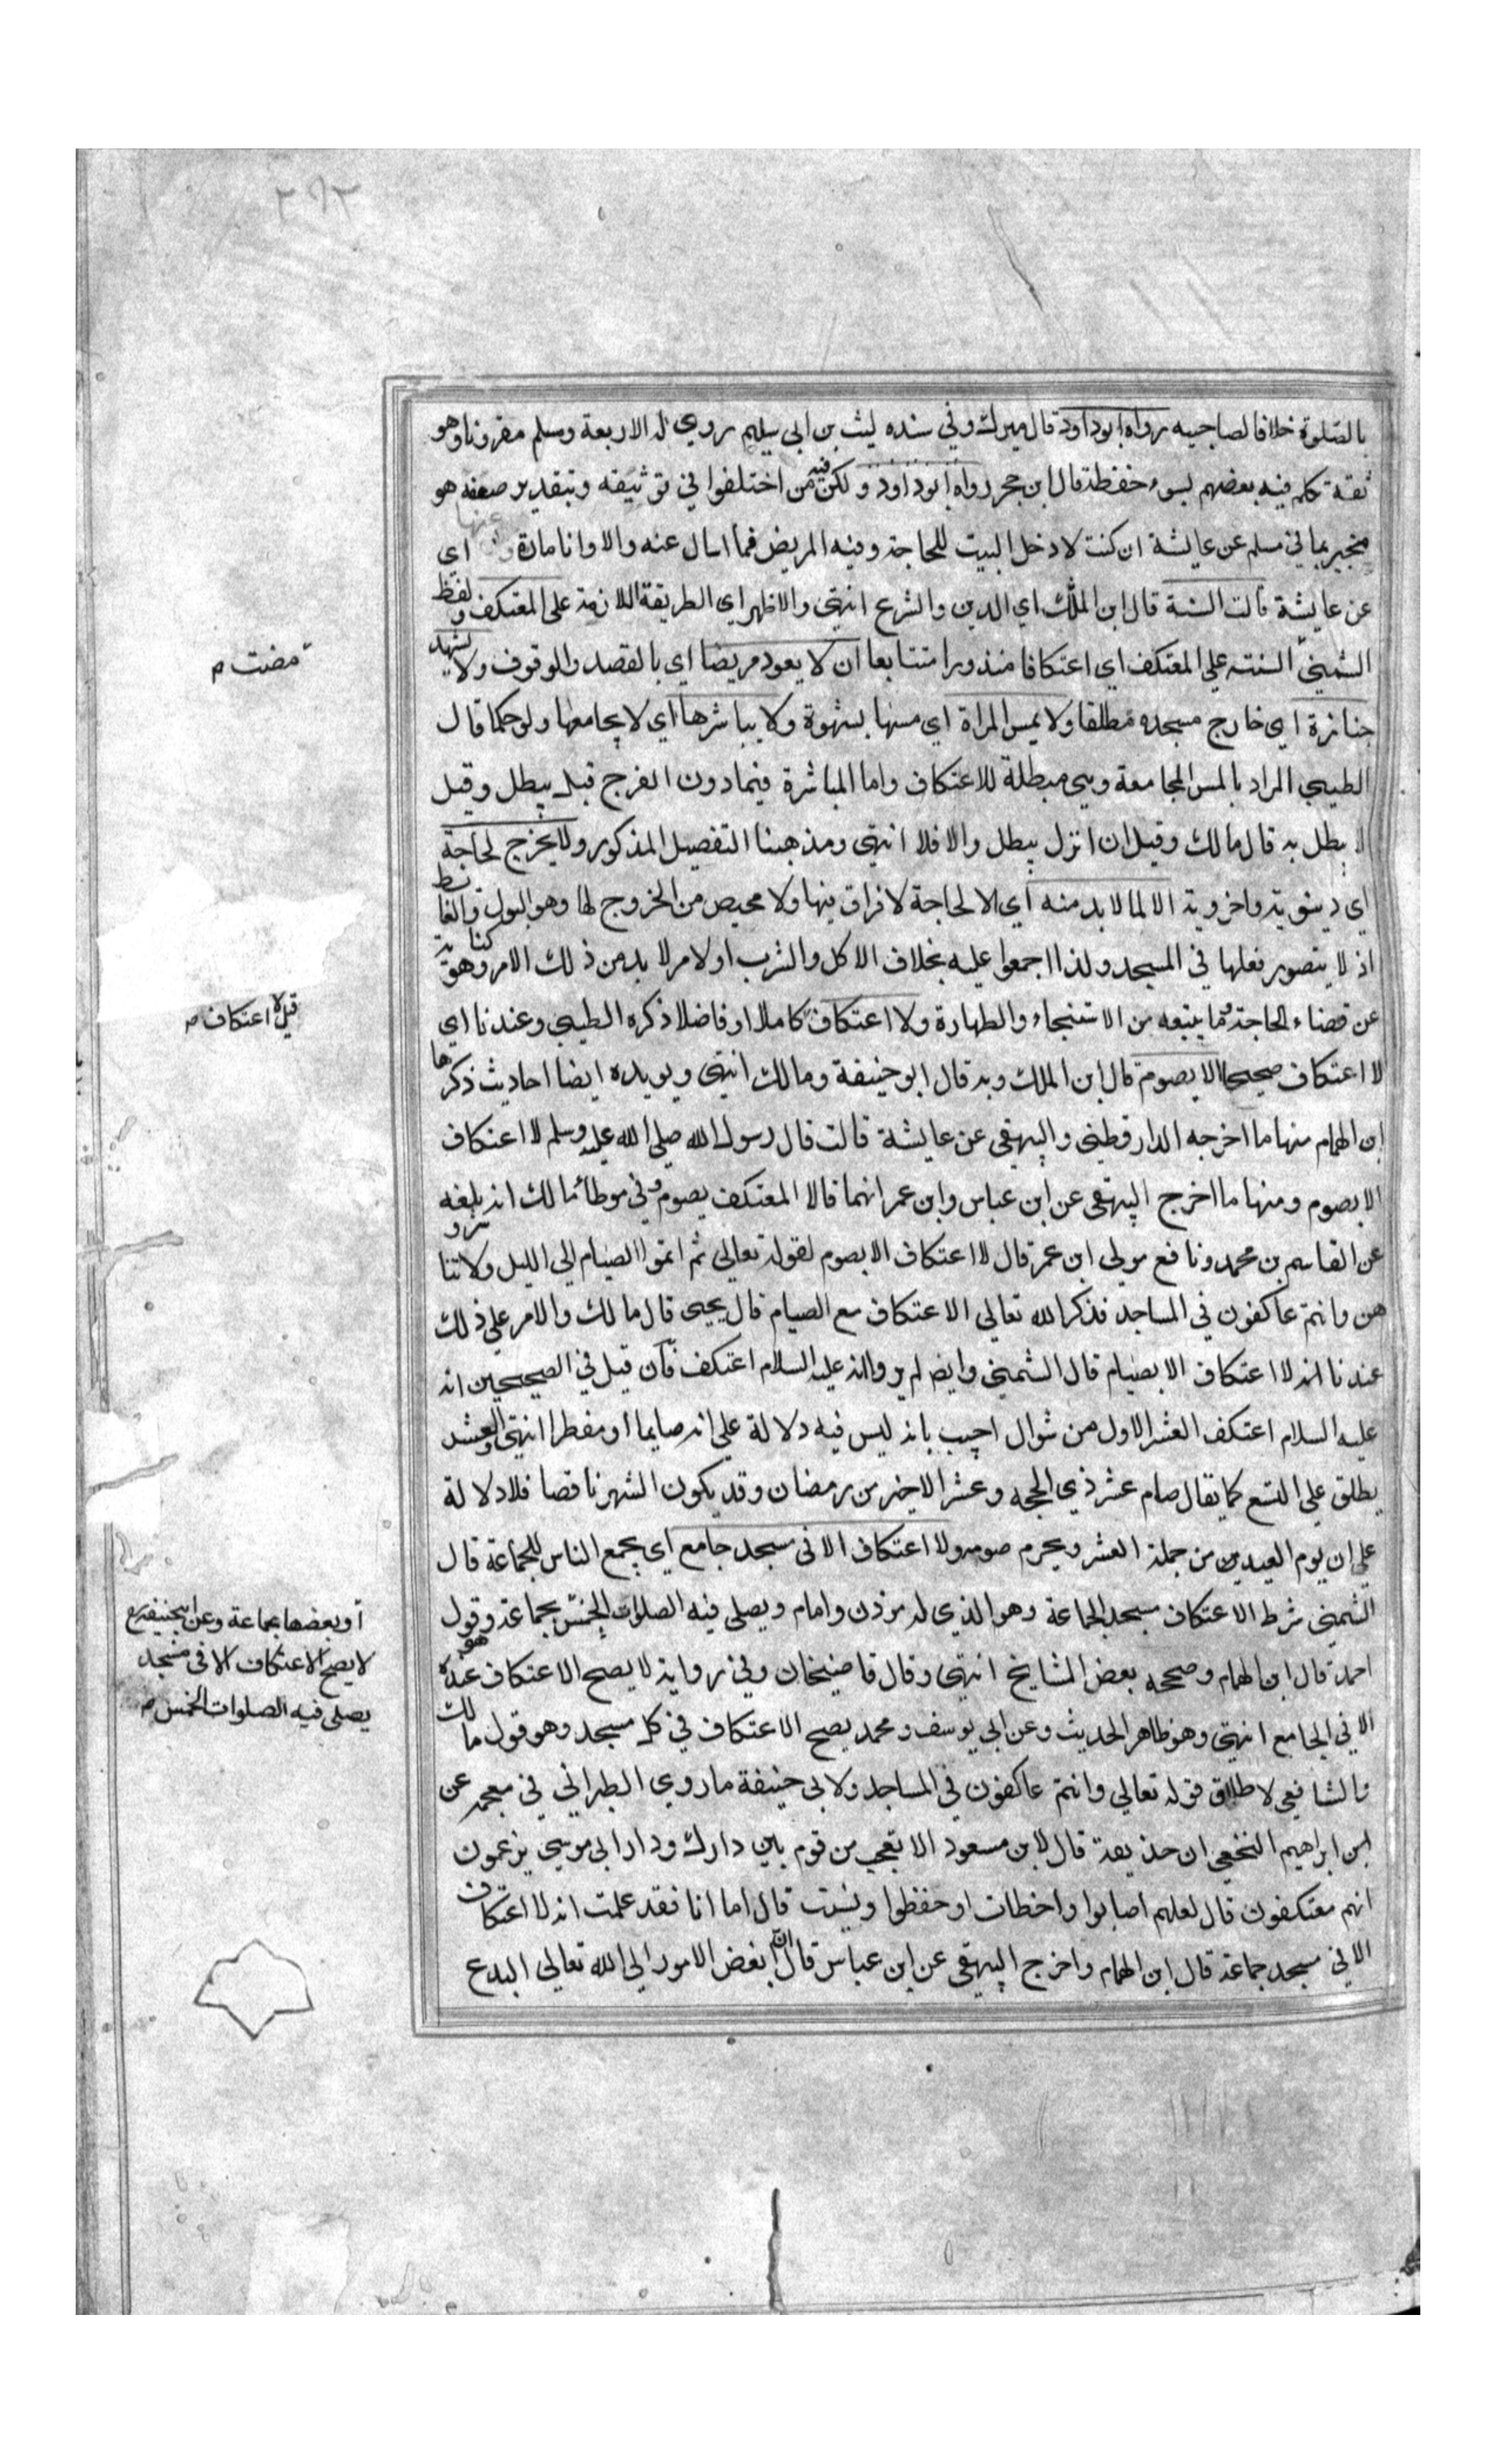 ٢٦٢
بالصلوة خلافا لصاحبيه رواه ابوداود قال ميرك وفي سنده ليث بن ابي سليم روي له الاربعة ومسلم مقرونا وهو
ثقة تكلم فيه بعضهم لسوء حفظه قال ابن حجر رواه ابوداود ولكن فيه من اختلفوا في توثيقه وبتقدير ضعفه هو
منجبر بما في مسلم عن عايشة ان كنت لادخل البيت للحاجة وفيه المريض فما اسال عنه والا وانا مارة وعنها اي
عن عايشة قالت السنة قال ابن الملك اي الدين والشرع انتهى والاظهر اي الطريقة اللازمة على المعتكف ولفظ
الشمني السنة علي المعتكف اي اعتكافا منذورا متتابعا ان لا يعود مريضا اي بالقصد والوقوف ولا يشهد
جنازة اي خارج مسجده مطلقا ولا يمس المراة اي مسها بشهوة ولا يباشرها اي لا يجامعها ولو حكما قال
الطيبي المراد بالمس المجامعة وهي مبطلة للاعتكاف واما المباشرة فيما دون الفرج قيل يبطل وقيل
لا يبطل به قال مالك وقيل ان انزل يبطل والا فلا انتهى ومذهبنا التفصيل المذكور ولا يخرج لحاجة
اي دينوية واخروية الا لما لا بد منه اي الا لحاجة لا فراق فيها ولا محيص من الخروج لها وهو البول والغايط
اذ لا يتصور فعلها في المسجد ولذا اجمعوا عليه بخلاف الاكل والشرب او لامر لا بد من ذلك الامر وهو كناية
عن قضاء الحاجة وما يتبعه من الاستنجاء والطهارة ولا اعتكاف كاملا او فاضلا ذكره الطيبي وعندنا اي
لا اعتكاف صحيحا الا بصوم قال ابن الملك وبه قال ابو حنيفة ومالك انتهى ويويده ايضا احاديث ذكرها
ابن الهمام منها ما اخرجه الدارقطني والبيهقي عن عايشة قالت قال رسول الله صلي الله عليه وسلم لا اعتكاف
الا بصوم ومنها ما اخرج البيهقي عن ابن عباس وابن عمر انهما قالا المعتكف يصوم وفي موطا مالك انه بلغه
عن القاسم بن محمد ونافع مولى ابن عمر قال لا اعتكاف الا بصوم لقوله تعالى ثم اتموا الصيام الي الليل ولا تباشرو
هن وانتم عاكفون في المساجد فذكر الله تعالي الاعتكاف مع الصيام قال يحيى قال مالك والامر علي ذلك
عندنا انه لا اعتكاف الا بصيام قال الشمني وايضا لم يرو انه عليه السلام اعتكف فان قيل في الصحيحين انه
عليه السلام اعتكف العشر الاول من شوال اجيب بانه ليس فيه دلالة على انه صايما او مفطرا انتهى والعشر
يطلق علي التسع كما يقال صام عشر ذي الحجه وعشر الاخير من رمضان وقد يكون الشهر ناقصا فلا دلالة
علي ان يوم العيد من من جملة العشر ويحرم صومه ولا اعتكاف الا في مسجد جامع اي يجمع الناس للجماعة قال
الشمني شرط الاعتكاف مسجد الجماعة وهو الذي له مؤذن وامام ويصلي فيه الصلوات الخمس بجماعة وقول
احمد قال ابن الهمام وصححه بعض المشايخ انتهى وقال قاضيخان وفي رواية لا يصح الاعتكاف عنده
الا في الجامع انتهى وهو ظاهر الحديث وعن ابي يوسف ومحمد يصح الاعتكاف في كل مسجد وهو قول مالك
والشافعي لاطلاق قوله تعالي وانتم عاكفون في المساجد ولابي حنيفة ما روي الطبراني في معجمه عن
ابن ابراهيم النخعي ان حذيفة قال لابن مسعود الا تعجب من قوم بين دارك ودار ابي موسي يزعمون
انهم معتكفون قال لعلهم اصابوا واخطات او حفظوا ونسيت قال اما انا فقد علمت انه لا اعتكاف
الا في مسجد جماعة قال ابن الهمام واخرج البيهقي عن ابن عباس قال ان ابغض الامور الى الله تعالى البدع
مضت م
قيل لا اعتكاف م
او بعضها بجماعة وعن ابيحنيفة
لا يصح الاعتكاف الا في مسجد
يصلي فيه الصلوات الخمس م